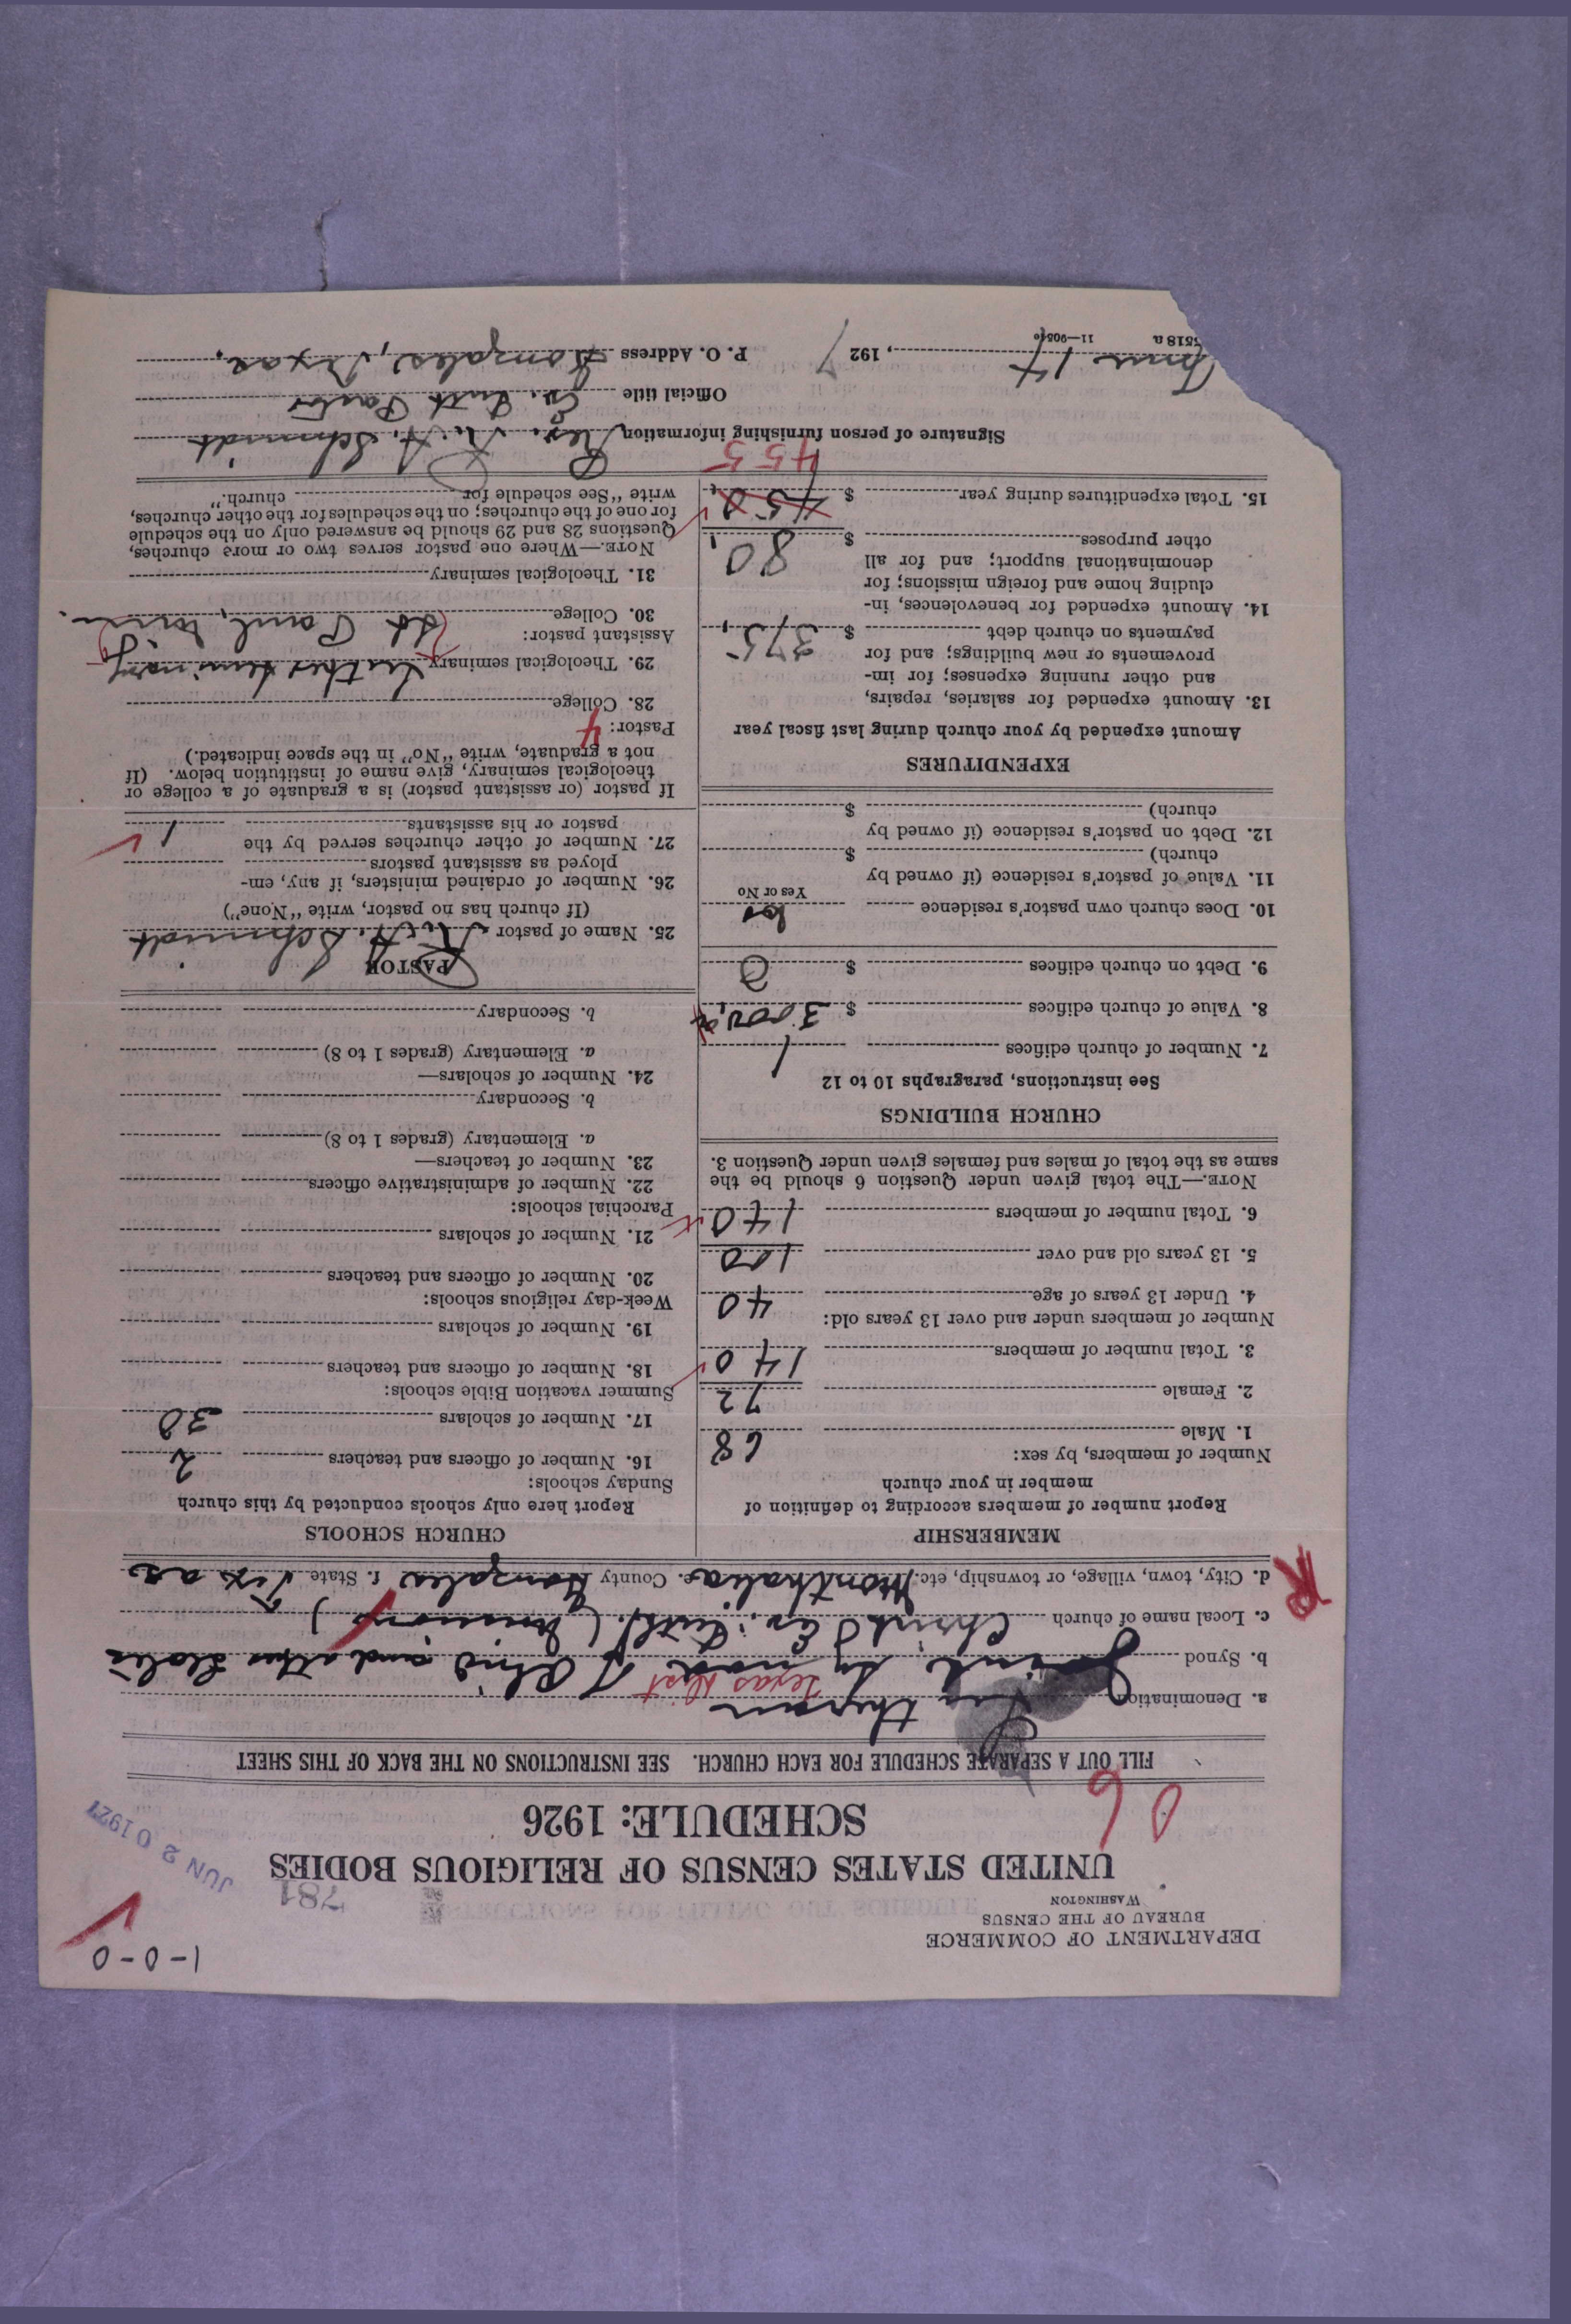 1-0-0
DEPARTMENT OF COMMERCE
BUREAU OF THE CENSUS
WASHINGTON
781
JUN 20 1927
UNITED STATES CENSUS OF RELIGIOUS BODIES
SCHEDULE: 1926
06
FILL OUT A SEPARATE SCHEDULE FOR EACH CHURCH. SEE INSTRUCTIONS ON THE BACK OF THIS SHEET
a. Denomination Lutheran
Texas Dist
b. Synod Joint Synod of Ohio and other States
c. Local name of church Christ Ev. Luth. (Mission)
R
d. City, town, village, or township, etc. Monthalia e. County Gonzales f. State Texas
MEMBERSHIP
Report number of members according to definition of
member in your church
Number of members, by sex:
1. Male 68
2. Female 72
3. Total number of members 140
Number of members under and over 13 years old:
4. Under 13 years of age 40
5. 13 years old and over 100
6. Total number of members 140
NOTE.—The total given under Question 6 should be the
same as the total of males and females given under Question 3.
CHURCH BUILDINGS
See instructions, paragraphs 10 to 12
7. Number of church edifices 1
8. Value of church edifices $ 3000,
9. Debt on church edifices $ 0
10. Does church own pastor's residence no
Yes or No
11. Value of pastor's residence (if owned by
church) $
12. Debt on pastor's residence (if owned by
church) $
EXPENDITURES
Amount expended by your church during last fiscal year
13. Amount expended for salaries, repairs,
and other running expenses; for im-
provements or new buildings; and for
payments on church debt $ 375,
14. Amount expended for benevolences, in-
cluding home and foreign missions; for
denominational support; and for all
other purposes $ 80,
15. Total expenditures during year $ 450,
455
CHURCH SCHOOLS
Report here only schools conducted by this church
Sunday schools:
16. Number of officers and teachers 2
17. Number of scholars 30
Summer vacation Bible schools:
18. Number of officers and teachers
19. Number of scholars
Week-day religious schools:
20. Number of officers and teachers
21. Number of scholars
Parochial schools:
22. Number of administrative officers
23. Number of teachers—
a. Elementary (grades 1 to 8)
b. Secondary
24. Number of scholars—
a. Elementary (grades 1 to 8)
b. Secondary
PASTOR
25. Name of pastor R. A. Schmidt
(If church has no pastor, write "None")
26. Number of ordained ministers, if any, em-
ployed as assistant pastors
27. Number of other churches served by the
pastor or his assistants 1
If pastor (or assistant pastor) is a graduate of a college or
theological seminary, give name of institution below. (If
not a graduate, write "No" in the space indicated.)
Pastor: 4
28. College
29. Theological seminary Luther Seminary
Assistant pastor:
30. College St Paul, Minn.
31. Theological seminary
NOTE.—Where one pastor serves two or more churches,
Questions 28 and 29 should be answered only on the schedule
for one of the churches; on the schedules for the other churches,
write "See schedule for church."
Signature of person furnishing information Rev. R. A. Schmidt
Official title Ev. Luth Pastor
June 17, 1927 P. O. Address Gonzales, Texas.
8518 a